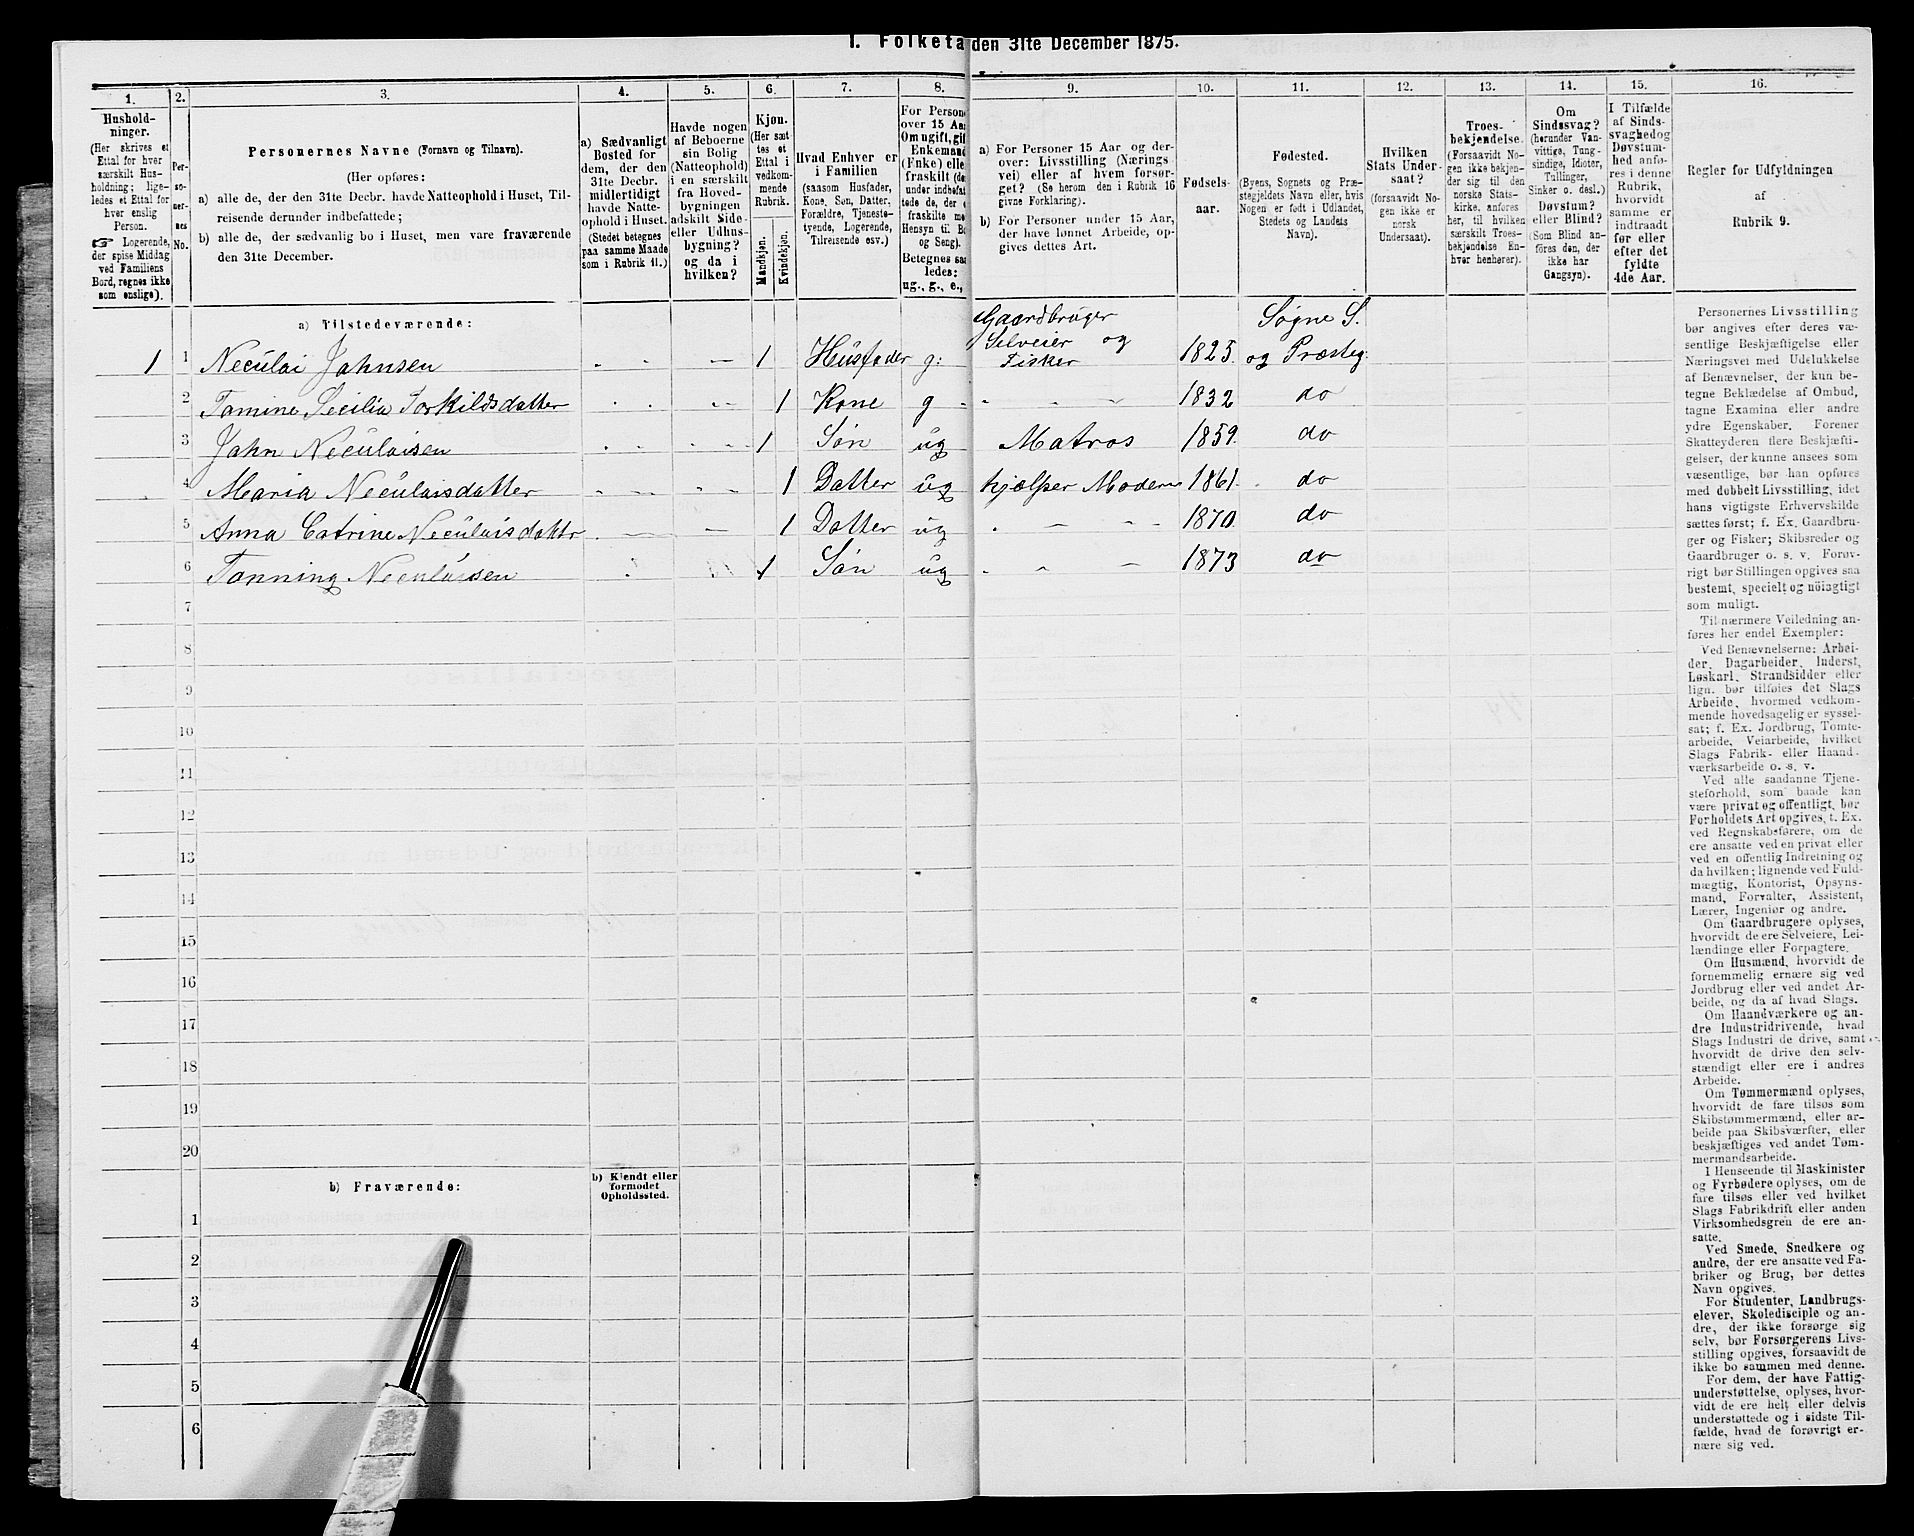 1. Folketa den 31te December 1875.
1. 2. 3. 4. 5. 6. 7. 8. 9. 10. 11. 12. 13. 14. 15. 16.
Hushold-
ninger.
(Her skrives et
Ettal for hver
særskilt Hus-
holdning; lige-
ledes et Ettal for
hver enslig
Person.
☞ Logerende,
der spise Middag
ved Familiens
Bord, regnes ikke
som enslige).
Per-
so-
ner-
nes
No.
Personernes Navne (Fornavn og Tilnavn).
(Her opføres:
a) alle de, der den 31te Decbr. havde Natteophold i Huset, Til-
reisende derunder indbefattede;
b) alle de, der sædvanlig bo i Huset, men vare fraværende
den 31te December.
a) Sædvanligt
Bosted for
dem, der den
31te Decbr.
midlertidigt
havde Natte-
ophold i Huset.
(Stedet betegnes
paa samme Maade
som i Rubrik 11.)
Havde nogen
af Beboerne
sin Bolig
(Natteophold)
i en særskilt
fra Hoved-
bygningen
adskilt Side-
eller Udhus-
bygning?
og da i
hvilken?
Kjøn.
(Her sæt-
tes et
Ettal i
vedkom-
mende
Rubrik.
Mandkjøn.
Kvindekjøn.
Hvad Enhver er
i Familien
(saasom Husfader,
Kone, Søn, Datter,
Forældre, Tjeneste-
tyende, Logerende,
Tilreisende osv.)
For Persone
over 15 Aa
Om ugift, gif
Enkemand
(Enke) elle
fraskilt (de
under indbefat
tede de, der e
fraskilte me
Hensyn til Bo
og Seng).
Betegnes saa
ledes:
ug., g., e.,
a) For Personer 15 Aar og der-
over: Livsstilling (Nærings-
vei) eller af hvem forsør-
get? (Se herom den i Rubrik 16
givne Forklaring).
b) For Personer under 15 Aar,
der have lønnet Arbeide, op-
gives dettes Art.
Fødsels-
aar.
Fødested.
(Byens, Sognets og Præ-
stegjeldets Navn eller, hvis
Nogen er født i Udlandet,
Stedets og Landets
Navn).
Hvilken
Stats Under-
saat?
(forsaavidt No-
gen ikke er
norsk
Undersaat).
Troes-
bekjendelse.
(Forsaavidt No-
gen ikke bekjen-
der sig til den
norske Stats-
kirke, anføres
her, til hvilken
særskilt Troes-
bekjendelse En-
hver henhører).
Om
Sindssvag?
(herunder Van-
vittige, Tung-
sindige, Idioter,
Tullinger,
Sinker o. desl.)
Døvstum?
eller Blind?
(Som Blind an-
føres den, der
ikke har
Gangsyn).
I Tilfælde
af Sinds-
svaghed og
Døvstum-
hed anfø-
res i denne
Rubrik,
hvorvidt
samme er
indtraadt
før eller
efter det
fyldte
4de Aar.
Regler for Udfyldningen
af
Rubrik 9.
a) Tilstedeværende:
Gaardbruger
Selveier og
Fisker
Sogne S.
og Præsteg:
1 1 Neculai Jahnsen 1 Husfader g: 1825.
2 Tamine Secilia Torkildsdatter 1 Kone g 1832 do
3 Jahn Neculaisen 1 Søn ug Matros 1859. do
4 Maria Neculaisdatter 1 Datter ug hjælper Moderen 1861. do
5 Anna Catrine Neculaisdatter 1 Datter ug 1870. do
6 Tønning Neculaisen 1 Søn ug 1873 do
7
8
9
10
11
12
13
14
15
16
17
18
19
20
b) Fraværende:
b) Kjendt eller
formodet
Opholdssted.
1
2
3
4
5
6
Personernes Livsstilling
bør angives efter deres væ-
sentlige Beskjæftigelse eller
Næringsvei med Udelukkelse
af Benævnelser, der kun be-
tegne Beklædelse af Ombud,
tagne Examina eller andre
ydre Egenskaber. Forener
Skatteyderen flere Beskjæfti-
gelser, der kunne ansees som
væsentlige, bør han opføres
med dobbelt Livsstilling, idet
hans vigtigste Erhvervskilde
sættes først; f. Ex. Gaardbru-
ger og Fisker; Skibsreder og
Gaardbruger o. s. v. Forøv-
rigt bør Stillingen opgives saa
bestemt, specielt og nöiagtigt
som muligt.
Til nærmere Veiledning an-
føres her endel Exempler:
Ved Benævnelserne: Arbei-
der, Dagarbeider, Inderst,
Løskarl, Strandsidder eller
lign. bør tilføies det Slags
Arbeide, hvormed vedkom-
mende hovedsagelig er syssel-
sat; f. Ex. Jordbrug, Tomte-
arbeide, Veiarbeide, hvilket
Slags Fabrik- eller Haand-
værksarbeide o. s. v.
Ved alle saadanne Tjene-
steforhold, som baade kan
være privat og offentligt, bør
Forholdets Art opgives, t. Ex.
ved Regnskabsførere, om de
ere ansatte ved en privat eller
ved en offentlig Indretning og
da hvilken; lignende ved Fuld-
mægtig, Kontorist, Opsyns-
mand, Forvalter, Assistent,
Lærer, Ingeniør og andre.
Om Gaardbrugere oplyses,
hvorvidt de ere Selveiere, Lei-
lændinge eller Forpagtere.
Om Husmænd, hvorvidt de
fornemmelig ernære sig ved
Jordbrug eller ved andet Ar-
beide, og da af hvad Slags.
Om Haandværkere og an-
dre Industridrivende, hvad
Slags Industri de drive, samt
hvorvidt de drive den selv-
stændigt eller ere i andres
Arbeide.
Om Tømmermænd oplyses,
hvorvidt de fare tilsøs som
Skibstømmermænd, eller ar-
beide paa Skibsværfter, eller
beskjæftiges ved andet Tøm-
mermandsarbeide.
I Henseende til Maskinister
og Fyrbødere oplyses, om de
fare tilsøs eller ved hvilket
Slags Fabrikdrift eller anden
Virksomhedsgren de ere an-
satte.
Ved Smede, Snedkere og
andre, der ere ansatte ved Fa-
briker og Brug, bør dettes
Navn opgives.
For Studenter, Landbrugs-
elever, Skoledisciple og an-
dre, der ikke forsørge sig
selv, bør Forsørgerens Livs-
stilling opgives, forsaavidt de
ikke bo sammen med denne.
For dem, der have Fattig-
understøttelse, oplyses, hvor-
vidt de ere helt eller delvis
understøttede og i sidste Til-
fælde, hvad de forøvrigt er-
nære sig ved.